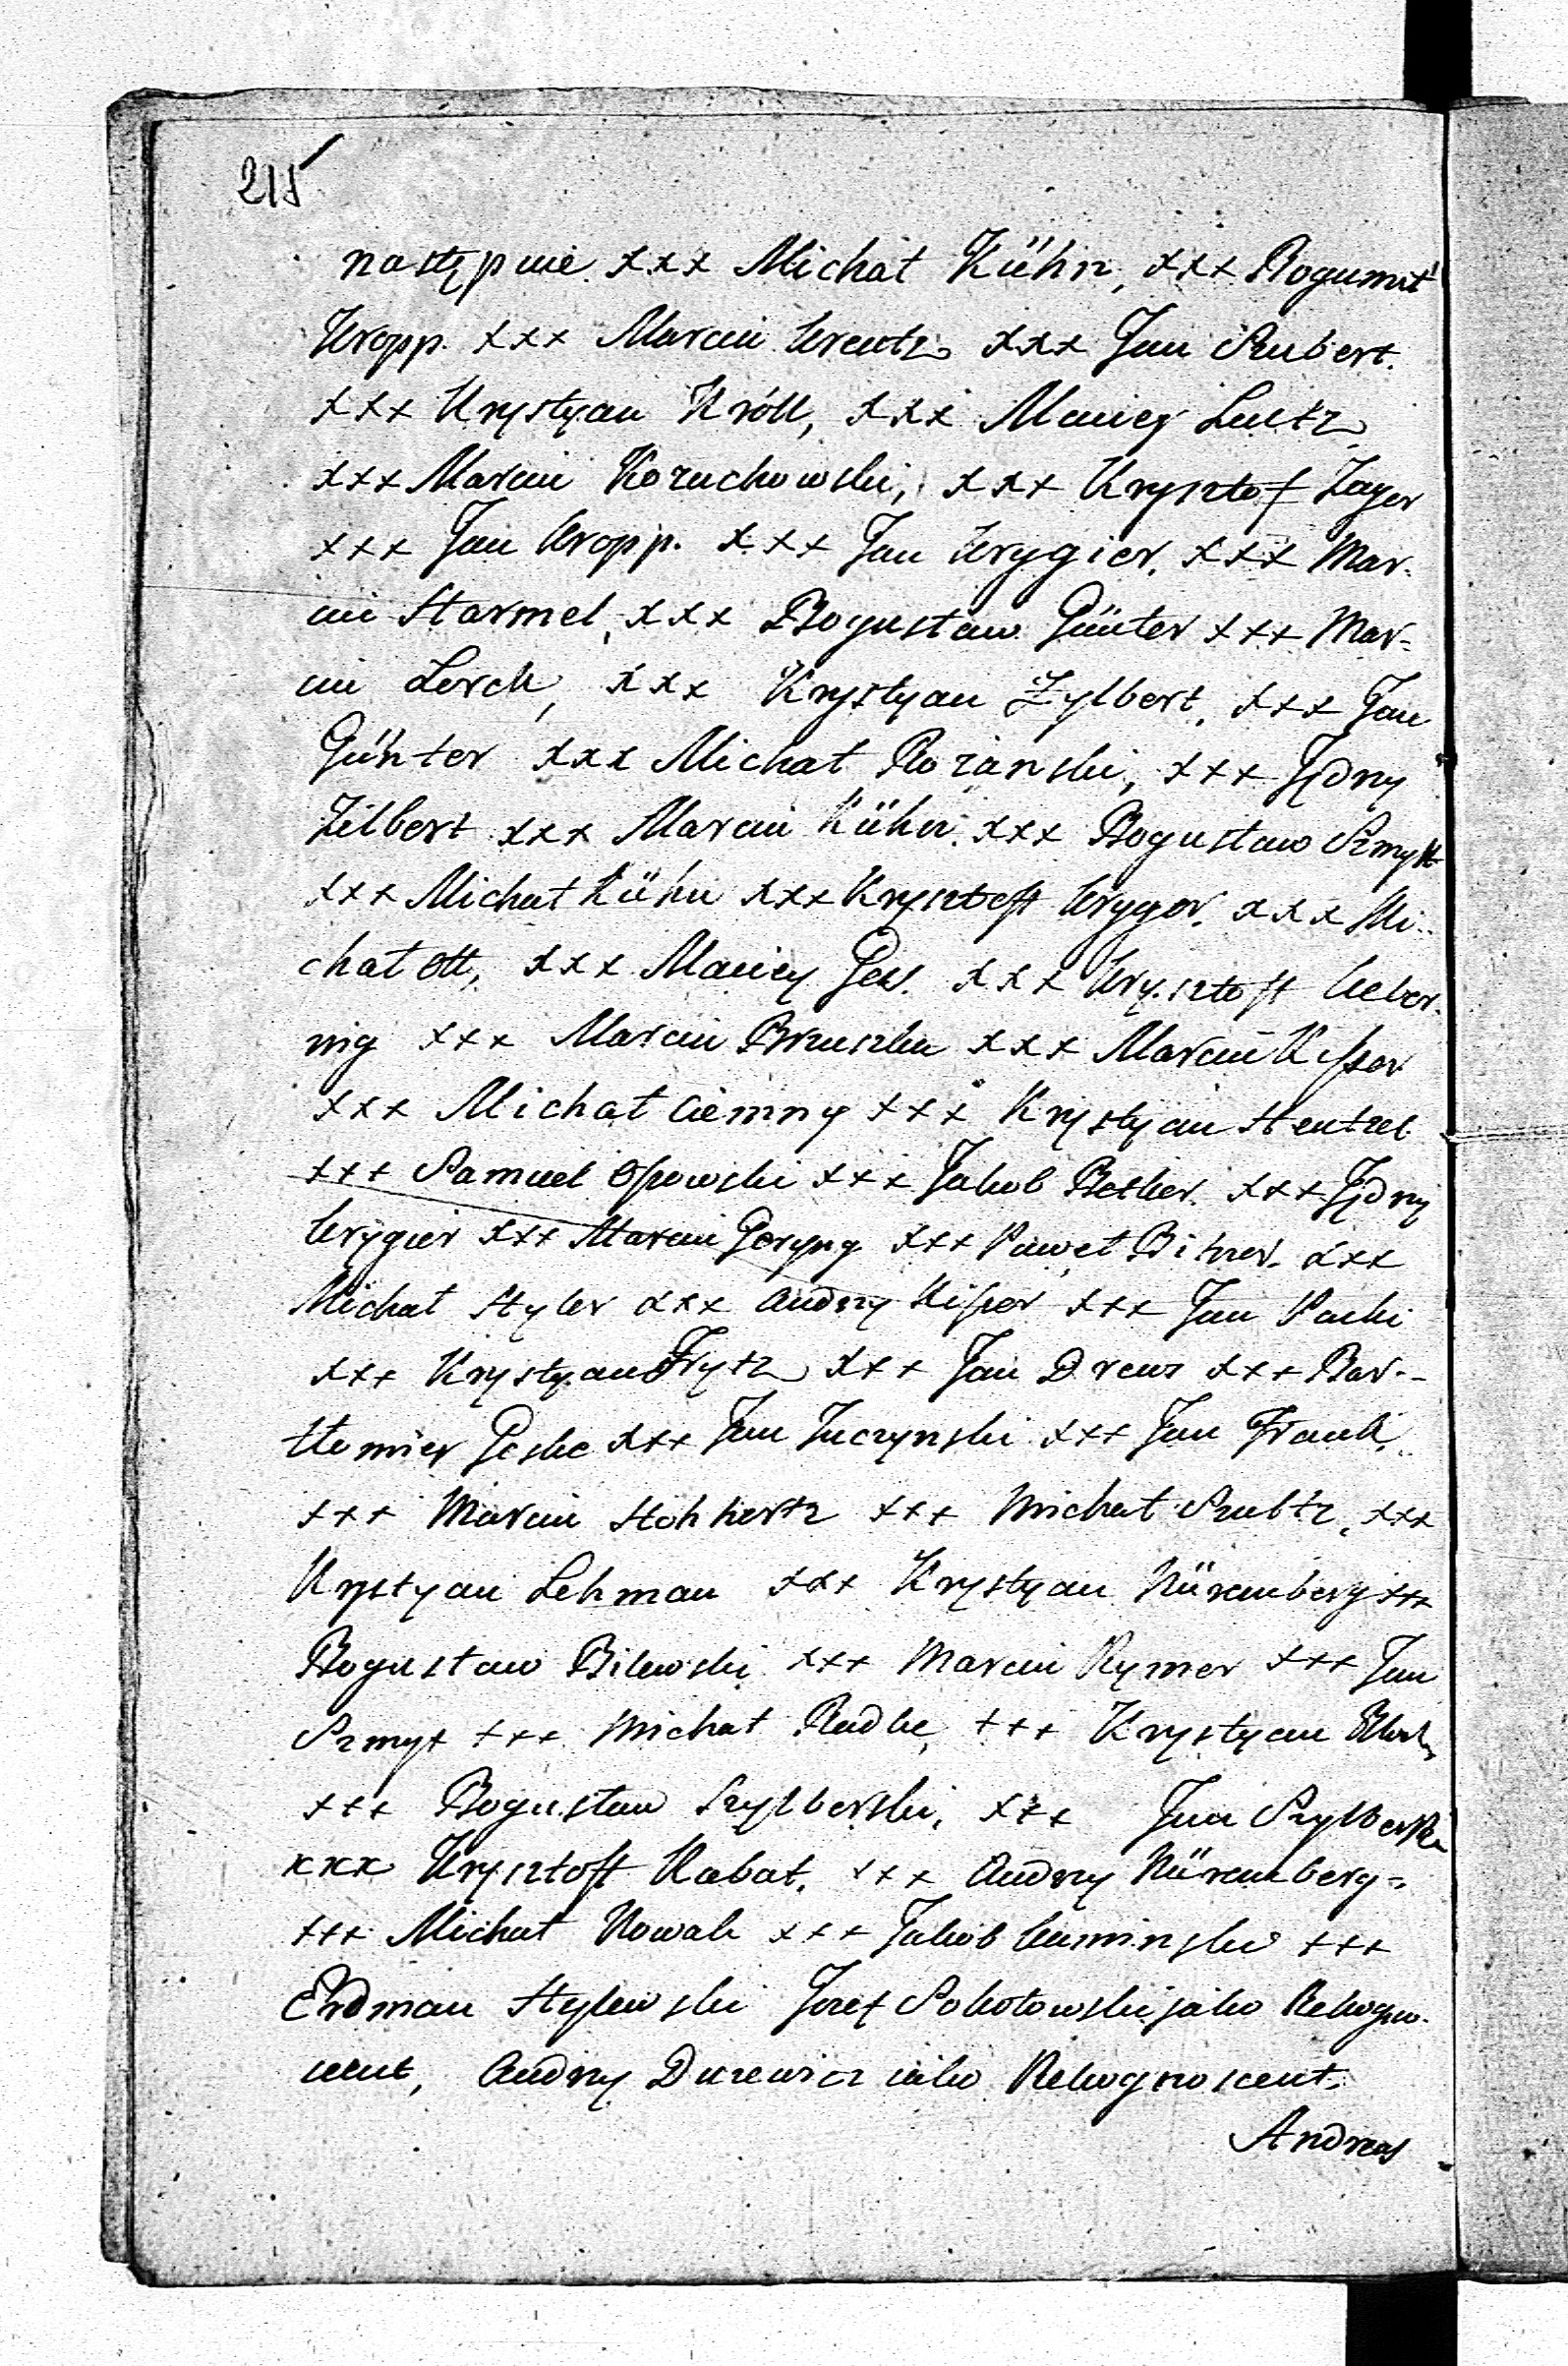 215
następnie xxx Michał Kühn, xxx Bogumił
Kropp. xxx Marcin Krentz xxx Jan Szubert.
xxx Krystyan Króll, xxx Maciej Lentz
xxx Marcin Kozuchowski, xxx Krysztof Zager
xxx Jan Kropp. xxx Jan Krygier, xxx Mar-
cin Harmel, xxx Bogusław Günter xxx Mar-
cin Lerch, xxx Krystyan Zylbert, xxx Jan
Günter xxx Michał Rożanski, xxx Jędrzy
Zilbert xxx Marcin Kühn. xxx Bogusław Szmytt
xxx Michał Kühn xxx Krysztoff Kryger. xxx Mi-
chał Ott, xxx Maciey Ges. xxx Krysztoff Ueber-
nig xxx Marcin Bruszka xxx Marcin Kisser
xxx Michał Ciemny xxx Krystyan Hentzel
xxx Samuel Ossowski xxx Jakob Betker. xxx Jędrzy
Krygier xxx Marcin Geryng xxx Paweł Bitner. xxx
Michał Hyler xxx Andrzy Kisser xxx Jan Packi
xxx Krystyan Frytz xxx Jan Drews xxx Bar-
tłomiey Geske xxx Jan Juczynski xxx Jan Frank,
xxx Marcin Hohhertz xxx Michał Szultz, xxx
Krystyan Lehman xxx Krystyan Nüremberg xxx
Bogusław Bilewski xxx Marcin Rymer xxx Jan
Szmyt xxx Michał Radke, xxx Krystyan
xxx Bogusław Szylberski, xxx Jan Szylberski
xxx Krysztoff Kabat. xxx Andrzy Nüremberg
xxx Michał Nowak xxx Jakob Kaminski xxx
Erdman Hylewski Jozef Sokołowski jako Rekogno-
scent, Andrzy Durewicz iako Rekognoscent.
Andreas